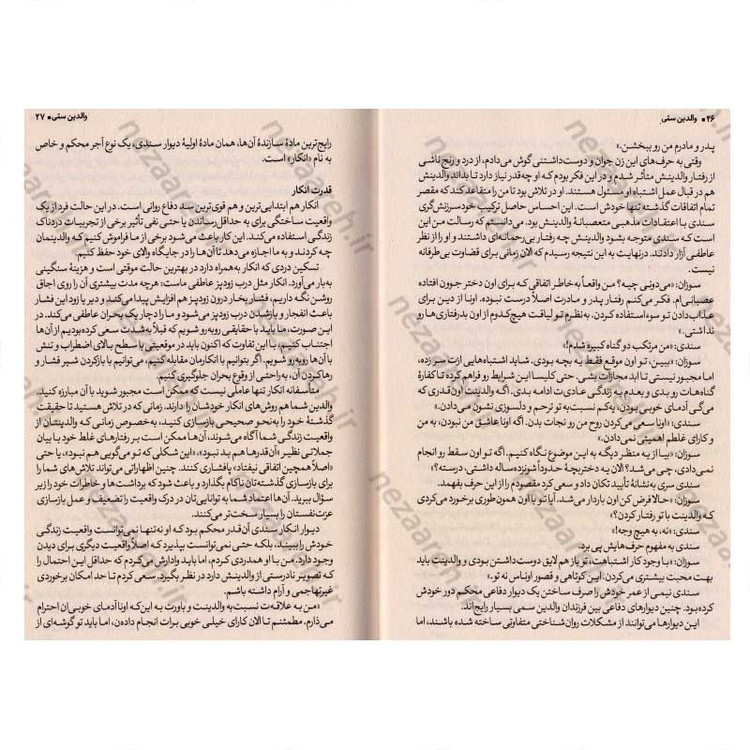 ۲۶ ■ والدین سمّی
پدر و مادرم من رو ببخشن.»
وقتی به حرف‌های این زن جوان و دوست‌داشتنی گوش می‌دادم، از درد و رنج ناشی
از رفتار والدینش متأثر شدم و در این فکر بودم که او چه‌قدر نیاز دارد تا بداند والدینش
هم در قبال عمل اشتباه او مسئول هستند. او در تلاش بود تا من را متقاعد کند که مقصر
تمام اتفاقات گذشته تنها خودش است. این احساس حاصل ترکیب خودسرزنش‌گری
سندی با اعتقادات مذهبی متعصبانهٔ والدینش بود. می‌دانستم که رسالت من این
است که سندی متوجه بشود والدینش چه رفتار بی‌رحمانه‌ای داشتند و او را از نظر
عاطفی آزار دادند. درنهایت به این نتیجه رسیدم که الان زمانی برای قضاوت بی‌طرفانه
نیست.
سوزان: «می‌دونی چیه؟ من واقعاً به‌خاطر اتفاقی که برای اون دختر جوون افتاده
عصبانی‌ام. فکر می‌کنم رفتار پدر و مادرت اصلاً درست نبوده. اونا از دین برای
عذاب‌دادن تو سوءاستفاده کردن. به‌نظرم تو لیاقت هیچ‌کدوم از اون بدرفتاری‌ها رو
نداشتی.»
سندی: «من مرتکب دو گناه کبیره شدم!»
سوزان: «ببین، تو اون موقع فقط یه بچه بودی. شاید اشتباه‌هایی ازت سر زده،
اما مجبور نیستی تا ابد مجازات بشی. حتی کلیسا این شرایط رو فراهم کرده تا کفارهٔ
گناهات رو بدی و بعدم به زندگی عادی‌ت ادامه بدی. اگه والدینت اون قدری که
می‌گی آدمای خوبی بودن، یه‌کم نسبت به تو ترحم و دلسوزی نشون می‌دادن.»
سندی: «اونا سعی می‌کردن روح من رو نجات بدن. اگه اونا عاشق من نبودن، به من
و کارای غلطم اهمیتی نمی‌دادن.»
سوزان: «بیا از یه منظر دیگه به این موضوع نگاه کنیم. اگه تو اون سقط رو انجام
نمی‌دادی، چی می‌شد؟ الان یه دختربچهٔ حدوداً شونزده‌ساله داشتی، درسته؟»
سندی سری به‌نشانهٔ تأیید تکان داد و سعی کرد مقصودم را از این حرف بفهمد.
سوزان: «حالا فرض کن اون باردار می‌شد. آیا تو با اون همون‌طوری برخورد می‌کردی
که والدینت با تو رفتار کردن؟»
سندی: «نه، به هیچ وجه!»
سندی به مفهوم حرف‌هایش پی برد.
سوزان: «با وجود کار اشتباهت، تو باز هم لایق دوست‌داشتن بودی و والدینت باید
بهت محبت بیشتری می‌کردن. این کوتاهی و قصور اوناس نه تو.»
سندی نیمی از عمر خودش را صرف ساختن یک دیوار دفاعی محکم دور خودش
کرده بود. چنین دیوارهای دفاعی بین فرزندان والدین سمی بسیار رایج‌اند.
این دیوارها می‌توانند از مشکلات روان‌شناختی متفاوتی ساخته شده باشند، اما
والدین سمّی ■ ۲۷
رایج‌ترین مادهٔ سازندهٔ آن‌ها، همان مادهٔ اولیهٔ دیوار سندی، یک نوع آجر محکم و خاص
به نام «انکار» است.
قدرت انکار
انکار هم ابتدایی‌ترین و هم قوی‌ترین سد دفاع روانی است. در این حالت فرد از یک
واقعیت ساختگی برای به حداقل رساندن یا حتی نفی تأثیر برخی از تجربیات دردناک
زندگی استفاده می‌کند. این کار باعث می‌شود برخی از ما فراموش کنیم که والدینمان
چه کردند و به ما اجازه می‌دهد تا آن‌ها را در جایگاه والای خود حفظ کنیم.
تسکین دردی که انکار به‌همراه دارد در بهترین حالت موقتی است و هزینهٔ سنگینی
به بار می‌آورد. انکار مثل درب زودپز عاطفی ماست: هرچه مدت بیشتری آن را روی اجاق
روشن نگه داریم، فشار بخار درون زودپز هم افزایش پیدا می‌کند و دیر یا زود این فشار
باعث انفجار و بازشدن درب زودپز می‌شود و ما را دچار یک بحران عاطفی می‌کند. در
این صورت، ما باید با حقایقی روبه‌رو شویم که قبلاً به‌شدت سعی کرده بودیم از آن‌ها
اجتناب کنیم، با این تفاوت که اکنون باید در موقعیتی با سطح بالای اضطراب و تنش
با آن‌ها روبه‌رو شویم. اگر بتوانیم با انکارمان مقابله کنیم، می‌توانیم با بازکردن شیر فشار و
رهاکردن آن، به‌راحتی از وقوع بحران جلوگیری کنیم.
متأسفانه انکار تنها عاملی نیست که ممکن است مجبور شوید با آن مبارزه کنید.
والدین شما هم روش‌های انکار خودشان را دارند. زمانی که در تلاش هستید تا حقیقت
گذشتهٔ خود را به‌نحو صحیحی بازسازی کنید، به‌خصوص زمانی که والدینتان از
واقعیت زندگی شما آگاه می‌شوند، آن‌ها ممکن است بر رفتارهای غلط خود با بیان
جملاتی نظیر «اَن‌قدرها هم بد نبود»، «این شکلی که تو می‌گویی هم نبود»، یا حتی
«اصلاً همچین اتفاقی نیفتاد» پافشاری کنند. چنین اظهاراتی می‌تواند تلاش‌های شما را
برای بازسازی گذشته‌تان ناکام بگذارد و باعث شود که برداشت‌ها و خاطرات خود را زیر
سؤال ببرید. آن‌ها اعتماد شما به توانایی‌تان در درک واقعیت را تضعیف و عمل بازسازی
عزت‌نفستان را بسیار سخت‌تر می‌کنند.
دیوار انکار سندی آن‌قدر محکم بود که او نه‌تنها نمی‌توانست واقعیت زندگی
خودش را ببیند، بلکه حتی نمی‌توانست بپذیرد که اصلاً واقعیت دیگری برای دیدن
وجود دارد. من با او همدردی کردم، اما باید وادارش می‌کردم که حداقل این احتمال را
که تصویر نادرستی از والدینش دارد در نظر بگیرد. سعی کردم تا حد امکان برخوردی
غیرتهاجمی و آرام داشته باشم.
«من به علاقه‌ت نسبت به والدینت و باورت به این‌که اونا آدمای خوبی‌ان احترام
می‌ذارم. مطمئنم تا الان کارای خیلی خوبی برات انجام داده‌ن، اما باید تو گوشه‌ای از
nezaareh.ir